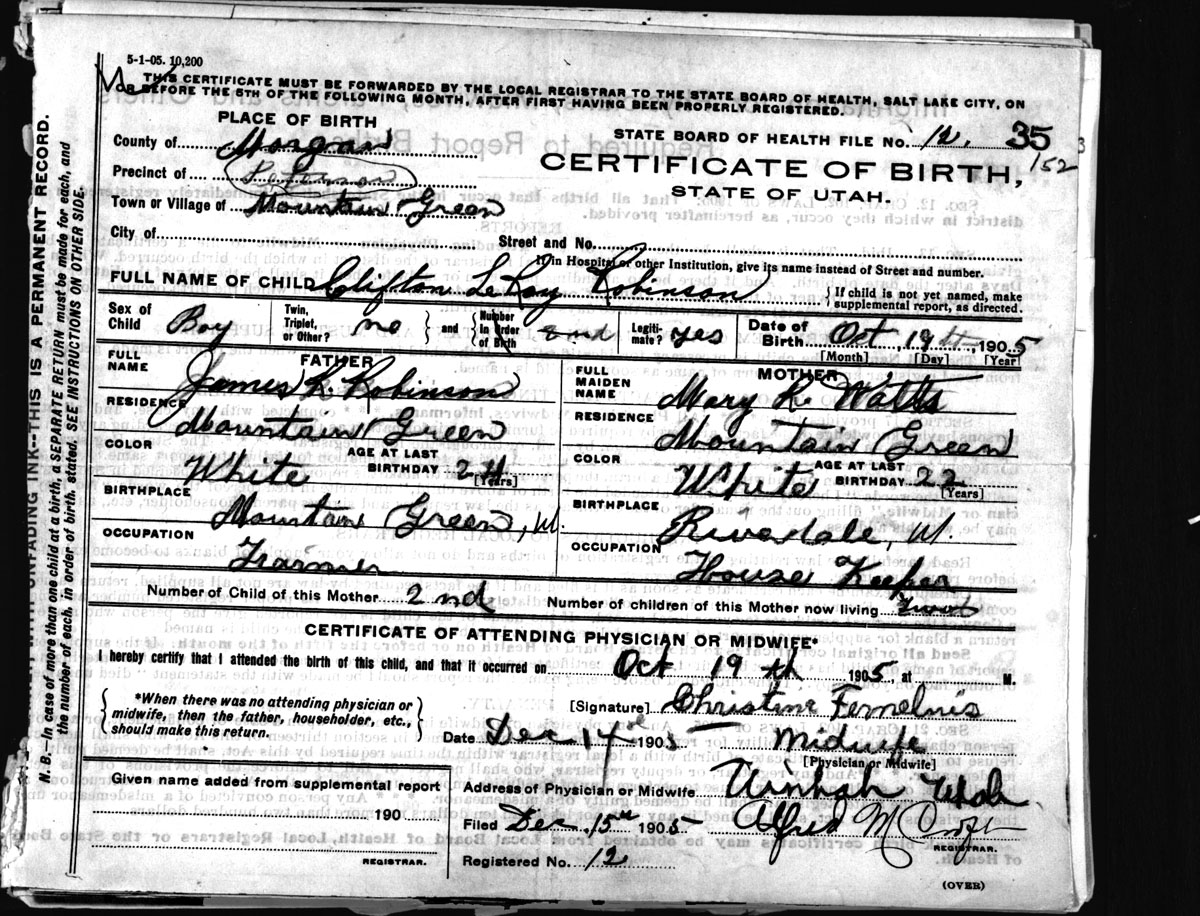 5-1-05. 10,200
THIS CERTIFICATE MUST BE FORWARDED BY THE LOCAL REGISTRAR TO THE STATE BOARD OF HEALTH, SALT LAKE CITY, ON
BEFORE THE 5TH OF THE FOLLOWING MONTH, AFTER FIRST HAVING BEEN PROPERLY REGISTERED.
PLACE OF BIRTH
STATE BOARD OF HEALTH FILE No. 12, 35
152
County of Morgan
CERTIFICATE OF BIRTH,
STATE OF UTAH.
Precinct of Peterson
Town or Village of Mountain Green
City of Street and No.
If in Hospital or other Institution, give its name instead of Street and number.
FULL NAME OF CHILD Clifton LeRoy Robinson
{ If child is not yet named, make
supplemental report, as directed.
Sex of Child Boy
Twin, Triplet, or Other? no } and { Number in Order of Birth 2nd
Legiti- mate? yes
Date of Birth Oct 19th, 1905
[Month] [Day] [Year]
FATHER
FULL NAME James R Robinson
RESIDENCE Mountain Green
COLOR White
AGE AT LAST BIRTHDAY 24 [Years]
BIRTHPLACE Mountain Green, U.
OCCUPATION Farmer
MOTHER
FULL MAIDEN NAME Mary R Watts
RESIDENCE Mountain Green
COLOR White
AGE AT LAST BIRTHDAY 22 [Years]
BIRTHPLACE Riverdale, U.
OCCUPATION House Keeper
Number of Child of this Mother 2nd
Number of children of this Mother now living two
CERTIFICATE OF ATTENDING PHYSICIAN OR MIDWIFE*
I hereby certify that I attended the birth of this child, and that it occurred on Oct 19th 1905 at M.
{ *When there was no attending physician or
midwife, then the father, householder, etc.,
should make this return. }
[Signature] Christine
Date Dec 14 1905 Midwife
[Physician or Midwife]
Given name added from supplemental report
190
REGISTRAR.
Address of Physician or Midwife Uintah Utah
Filed Dec 15th 1905 Alfred M
REGISTRAR.
Registered No. 12
(OVER)
UNFADING INK--THIS IS A PERMANENT RECORD.
N. B.--In case of more than one child at a birth, a SEPARATE RETURN must be made for each, and
the number of each, in order of birth, stated. SEE INSTRUCTIONS ON OTHER SIDE.